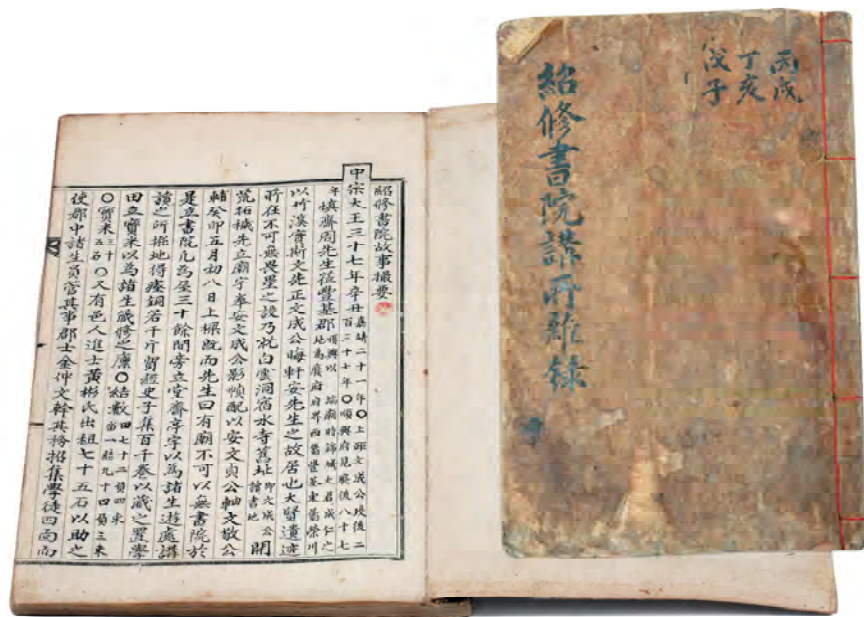 丙戌
丁亥
戊子
紹修書院講所雜錄
紹修書院故事撮要
中宗大王三十七年辛丑嘉靖二十一年〇上距文成公歿後二百三十七年〇順興府見廢後八十七
年慎齋周先生莅豐基郡順興以端廟時錦城大君成仁之地為廢府府界西舊豐基東舊榮川
以竹溪實斯文先正文成公晦軒安先生之故居也大賢遺迹
所在不可無畏壘之設乃就白雲洞宿水寺舊址卽文成公讀書地開
荒拓穢先立廟宇奉安文成公影幀配以安文貞公軸文敬公
輔癸卯五月初八日上樑旣而先生曰有廟不可以無書院於
是立書院凡為屋三十餘間旁立堂齋亭宇以為諸生遊處講
讀之所掘地得瘞銅若干斤貿經史子集百千卷以藏之置學
田立寶米以為諸生藏修之廩〇結數四七十二負四束九十四負三束
〇寶米三十五石〇又有邑人進士黃彬氏出租七十五石以助之
使郡中諸生員管其事郡士金仲文幹其務招集學徒四面而